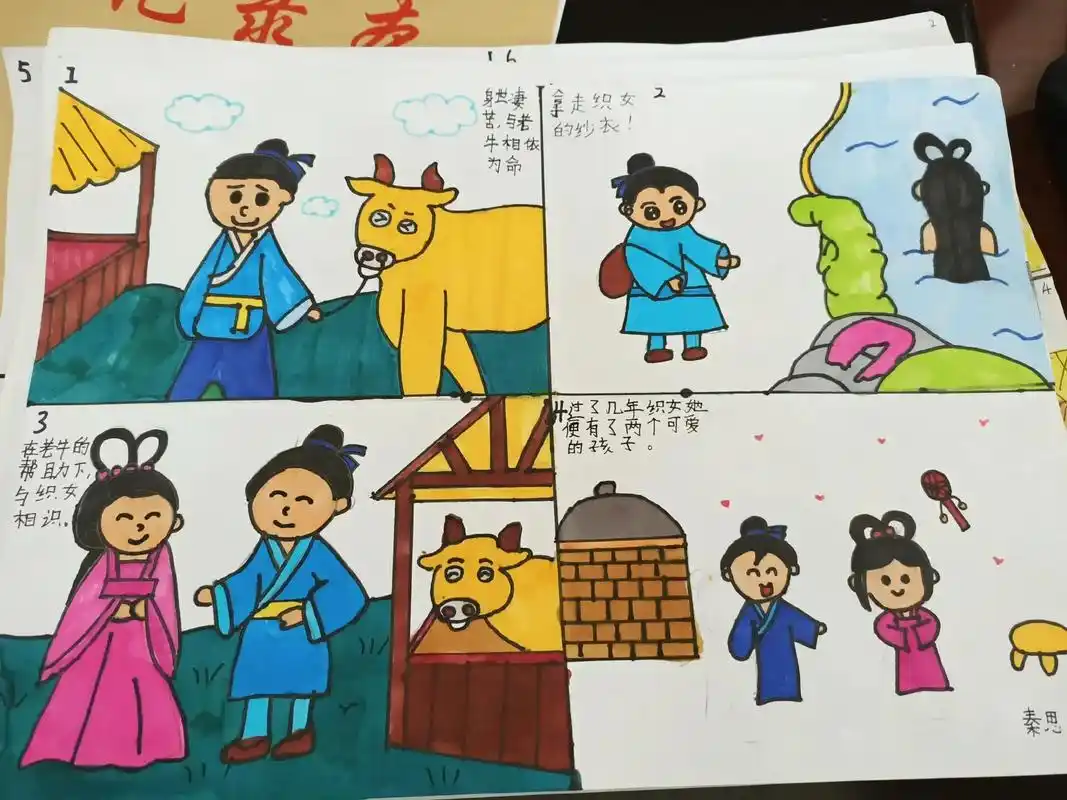 5
1
16
2
身世凄
苦,与老
牛相依
为命
2
拿走织女
的纱衣!
3
在老牛的
帮助下,
与织女
相识。
4
过了几年织女她
便有了两个可爱
的孩子。
4
秦思